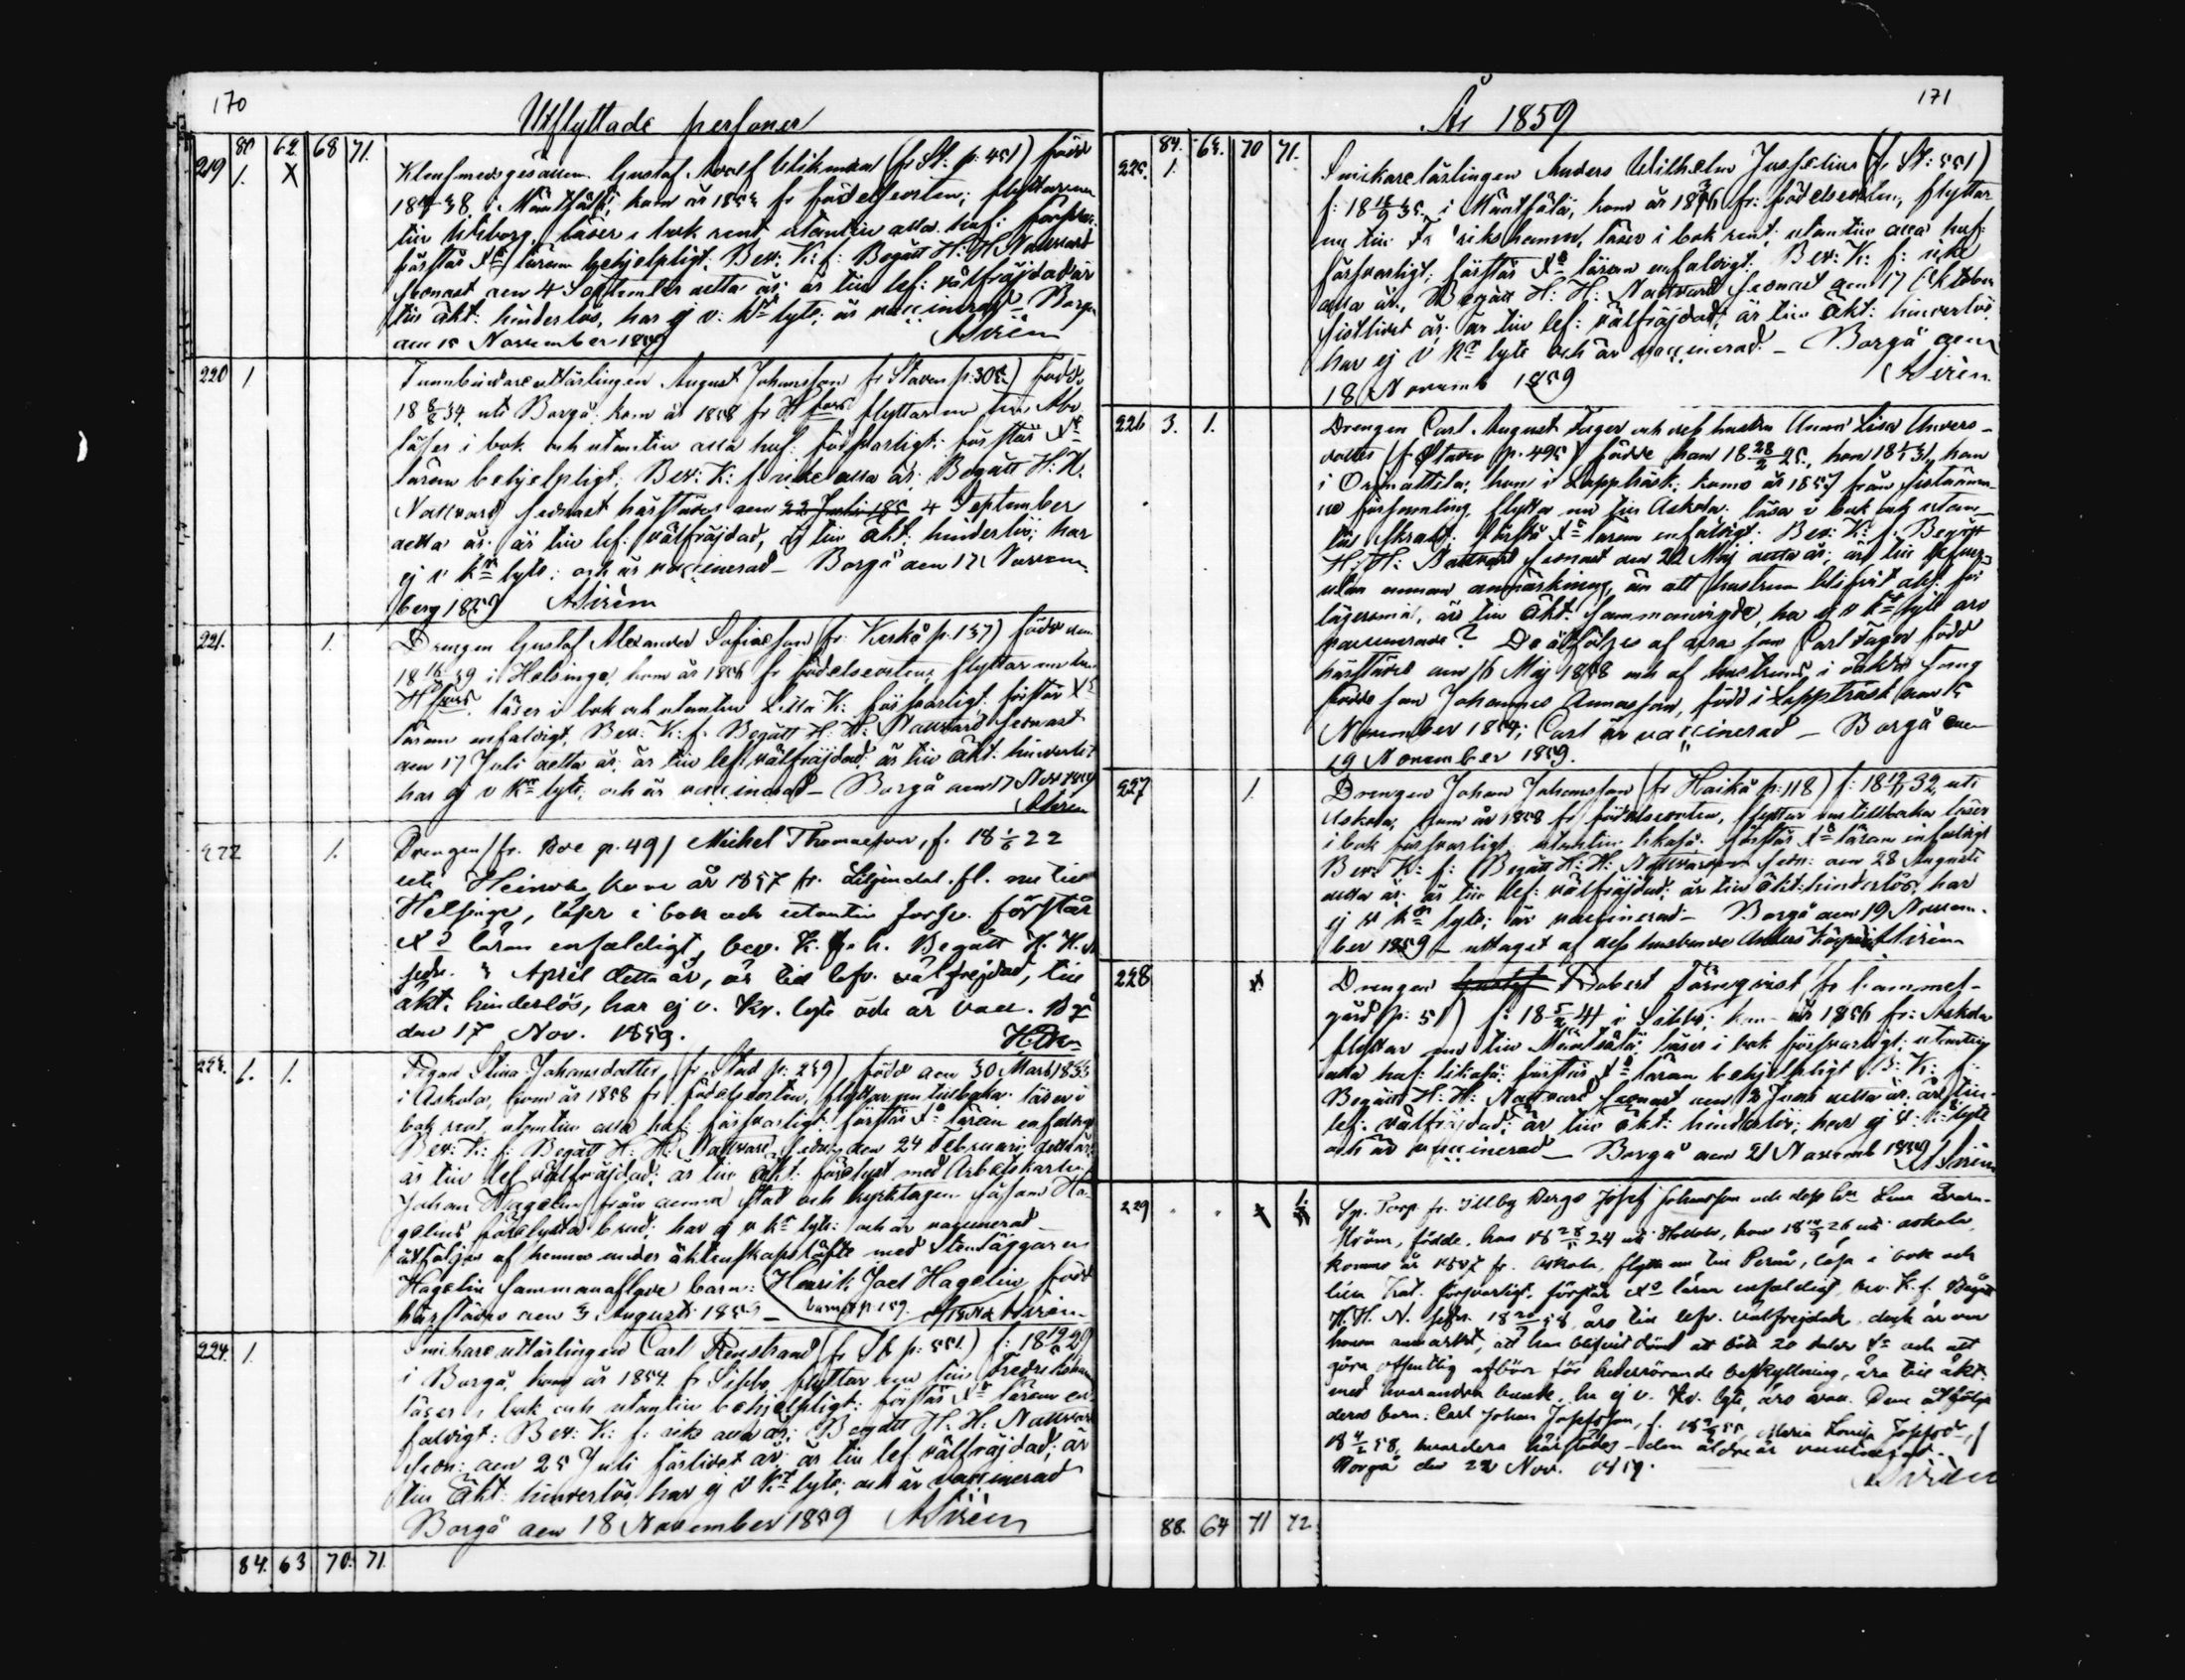 170
Utflyttade personer
80 62. 68 71.
219 1. X
Klensmedsgesällen Gustaf Adolf (fr St: p: 451) född
i Mäntsälä; kom år fr födelseorten; flyttar nu
till Wiborg, läser i bok rent utantill alla huf:
förstår Xi läran behjelpligt; Bev: K: f: Begått H: H. Nattvard
senast den 4 September detta år; är till lef: välfräjdad är
till äkt: hinderlös, har ej v: kr lyte; är vaccinerad – Borgå
den 15 November 1859 ASirèn
220 1
Tunnbindareutlärlingen August Johansson fr Staden p: 305.) född
18 8/8 34 uti Borgå; kom år 1858 fr Hfors flyttar nu till Åbo
läser i bok och utantill alla huf: försvarligt: förstår Xi
läran behjelpligt; Bev: K: f: icke alla år; Begått H: H.
Nattvard senast härstädes den 22 Juli 185 4 September
detta år: är till lef: välfräjdad, är till äkt: hinderlös; har
ej v kr lyte: och är vaccinerad – Borgå den 17 Novem-
berg 1859 ASirèn
221. 1.
Drengen Gustaf Alexander Sofiaeson (fr: p: 137) född den
18 16/ 39 i Helsinge, kom år 1856 fr födelseorten, flyttar nu till
Hfors. läser i bok och utantill Lilla K: försvarligt; förstår Xi
läran enfaldigt, Bev: K: f. Begått H: H: Nattvard senast
den 17 Juli detta år; är till lef: välfräjdad; är till äkt: hinderlös
har ej v kr lyte, och är vaccinerad – Borgå den 17 Nov 1859
ASirèn
222 1.
Drengen (fr. Boe p. 49) Michel Thomasson, f. 18 1/6 22
uti Heinola, kom år 1857 fr. Liljendal. fl. nu till
Helsinge, läser i bok och utantill försv. förstår
Xi läran enfaldigt, bev. K. f. h. Begått H. H. N
sedn. 3 April detta år, är till lefv. välfrejdad, till
äkt: hinderlös, har ej v. Kr. lyte och är vacc. Bgå
den 17 Nov. 1859.
223. 1. 1.
Pigan Stina Johansdotter, (fr. Stad p: 239) född den 30 Mars 1833
i Askola, kom år 1858 fr födelseorten, flyttar nu tillbaka: läser i
bok rent, utantill alla huf: försvarligt: förstår Xi läran enfaldigt
Bev: K: f: Begått H: H: Nattvard sedn den 24 Februari detta år
är till lef välfräjdad: är till äkt: förelyst med Arbetskarlen
Johan Hagelin från denna stad och kyrktagen såsom Ha-
gelins förelysta brud; har ej v kr lyte: och är vaccinerad –
åtföljes af hennes under äktenskapslöfte med Stenläggaren
Hagelin sammanaflade barn: Henrik Joel Hagelin född
härstädes den 3 Augusti 1859 – barnb p. 159. Borgå ASirèn
224. 1.
Snickareutlärlingen Carl Renstrand (fr St p: 551.) f: 18 12/ 29
i Borgå, kom år 1854 fr Sibbo, flyttar nu till Fredrikshamn
läser i bok och utantill behjelpligt: förstår Xi läran en-
faldigt: Bev: K: f: icke alla år; Begått H: H: Nattvard
sedn: den 25 Juli förlidet år: är till lef välfräjdad; är
till äkt: hinderlös, har ej v kr lyte; och är vaccinerad
Borgå den 18 November 1859 ASirèn
84. 63 70. 71.
171
År 1859
84. 63. 70 71.
225. 1.
Snickarelärlingen Anders Wilhelm Jusselius (fr St: 551)
f: 18 i Mäntsälä, kom år fr: födelseorten, flyttar
nu till Fredrikshamn, läser i bok rent, utantill alla huf:
försvarligt, förstår Xi läran enfaldigt: Bev: K: f: icke
alla år, Begått H: H: Nattvard senast den 17 Oktober
sistlidet år; är till lef: välfräjdad; är till äkt: hinderlös
har ej v kr lyte och är vaccinerad. – Borgå den
18 Novemb 1859 ASirèn.
226 3. 1.
Drengen Carl August Fager och dess hustru Anna Lisa Anders-
dotter (fr Staden p. 495) födde han 18 28/2 25, hon 18 1/1 31, han
i Orimattila, hon i Lappträsk; komo år 1857 från sistnämn-
de församling, flytta nu till Askola: läsa i bok och utan-
till svagt, förstå Xi läran enfaldigt: Bev: K: f. Begått
H: H: Nattvard senast den 22 Maj detta år; är till lefver-
utan annan anmärkning, än att hustrun blifvit abs. för
lägersmål, är till äkt: sammanvigde, ha ej v kr lyte äro
vaccinerade? De åtföljes af deras son Carl Fager född
härstädes den 16 Maj 1858 och af hustruns, i
födde son Johannes Annasson, född i Lappträsk den 5
November 1854; Carl är vaccinerad – Borgå den
19 November 1859.
227 1.
Drengen Johan Johansson (fr Haikå p: 118) f: 18 12/ 32 uti
Askola, kom år 1858 fr födelseorten, flyttar nu tillbaka läser
i bok försvarligt utantill likaså: förstår Xi läran enfaldigt
Bev: K: f: Begått H: H: Nattvarden sedn: den 28 Augusti
detta år: är till lef: välfräjdad: är till äkt: hinderlös; har
ej v kr lyte; är vaccinerad – Borgå den 19 Novem-
ber 1859 – uttaget af dess husbonde Anders ASirèn
228
Drengen Gustaf Robert Törnqvist, fr Gammel-
gård p: 51) f: 18 5/2 41 i Sibbo; kom år 1856 fr: Askola
flyttar nu till Mäntsälä; läser i bok försvarligt; utantill
alla huf: likaså: förstår Xi läran behjelpligt: B: K: f:
Begått H: H: Nattvard senast den 12 Juni detta år: är till
lef. välfräjdad; är till äkt: hinderlös; har ej v: kr lyte
och är vaccinerad – Borgå den 21 Novemb 1859 ASirèn
229
Sp. Torp. fr. Illby Bergs Josef Johansson och dess hu Lena
ström, födde, han 18 28/5 24 uti Hollola, hon 18 26 uti Askola,
komne år 1857 fr. Askola, flytta nu till Pernå, läsa i bok och
lilla Kat. försvarligt, förstår Xi läran enfaldigt, bev. K. f. Begått
H. H. N. sedn. 58, äro till lefv. välfrejdade, dock är om
honom anmärkt, att han blifvit dömd att böta 20 daler Sr och att
göra offentlig afbön för hederrörande beskyllning, äro till äkt.
med hvarandra bundne, ha ej v. Kr. lyte, äro vacc. Dem åtfölja
deras barn: Carl Johan Josefsson, f. 18 55, Maria Lovisa Josefsd., f
18 4/2 58, hvardera härstädes – den äldre är vaccinerad.
Borgå den 22 Nov. 1859. ASirèn
88. 64 71 72